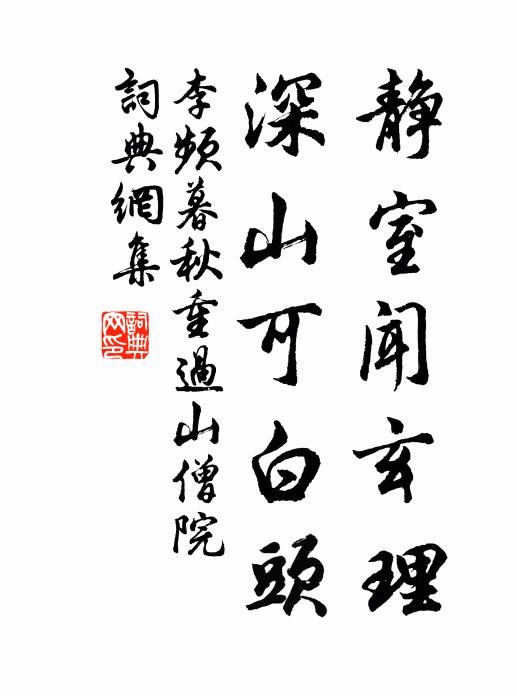 静室闻玄理
深山可白頭
李頻暮秋重過山僧院
詞典網集
詞典
网印